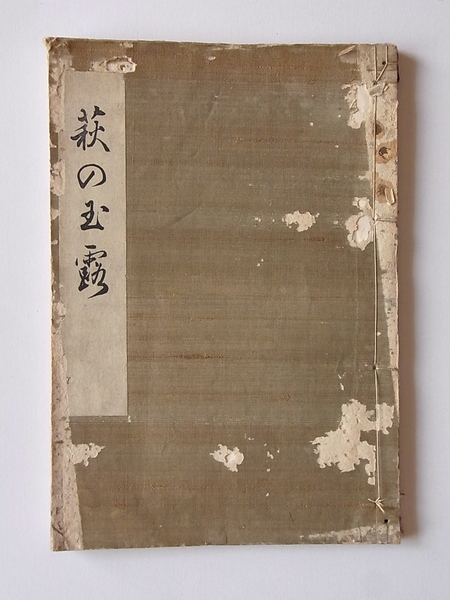 萩の玉露